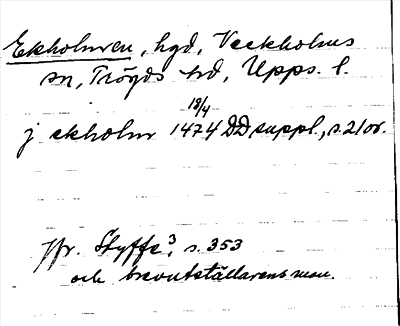 Ekholmen, hgd, Veckholms
sn, Trögds hd, Upps. l.
18/4
j ekholm 1474 DD suppl., s. 210.
Jfr. Styffe³, s. 353
och brevutställarens man.